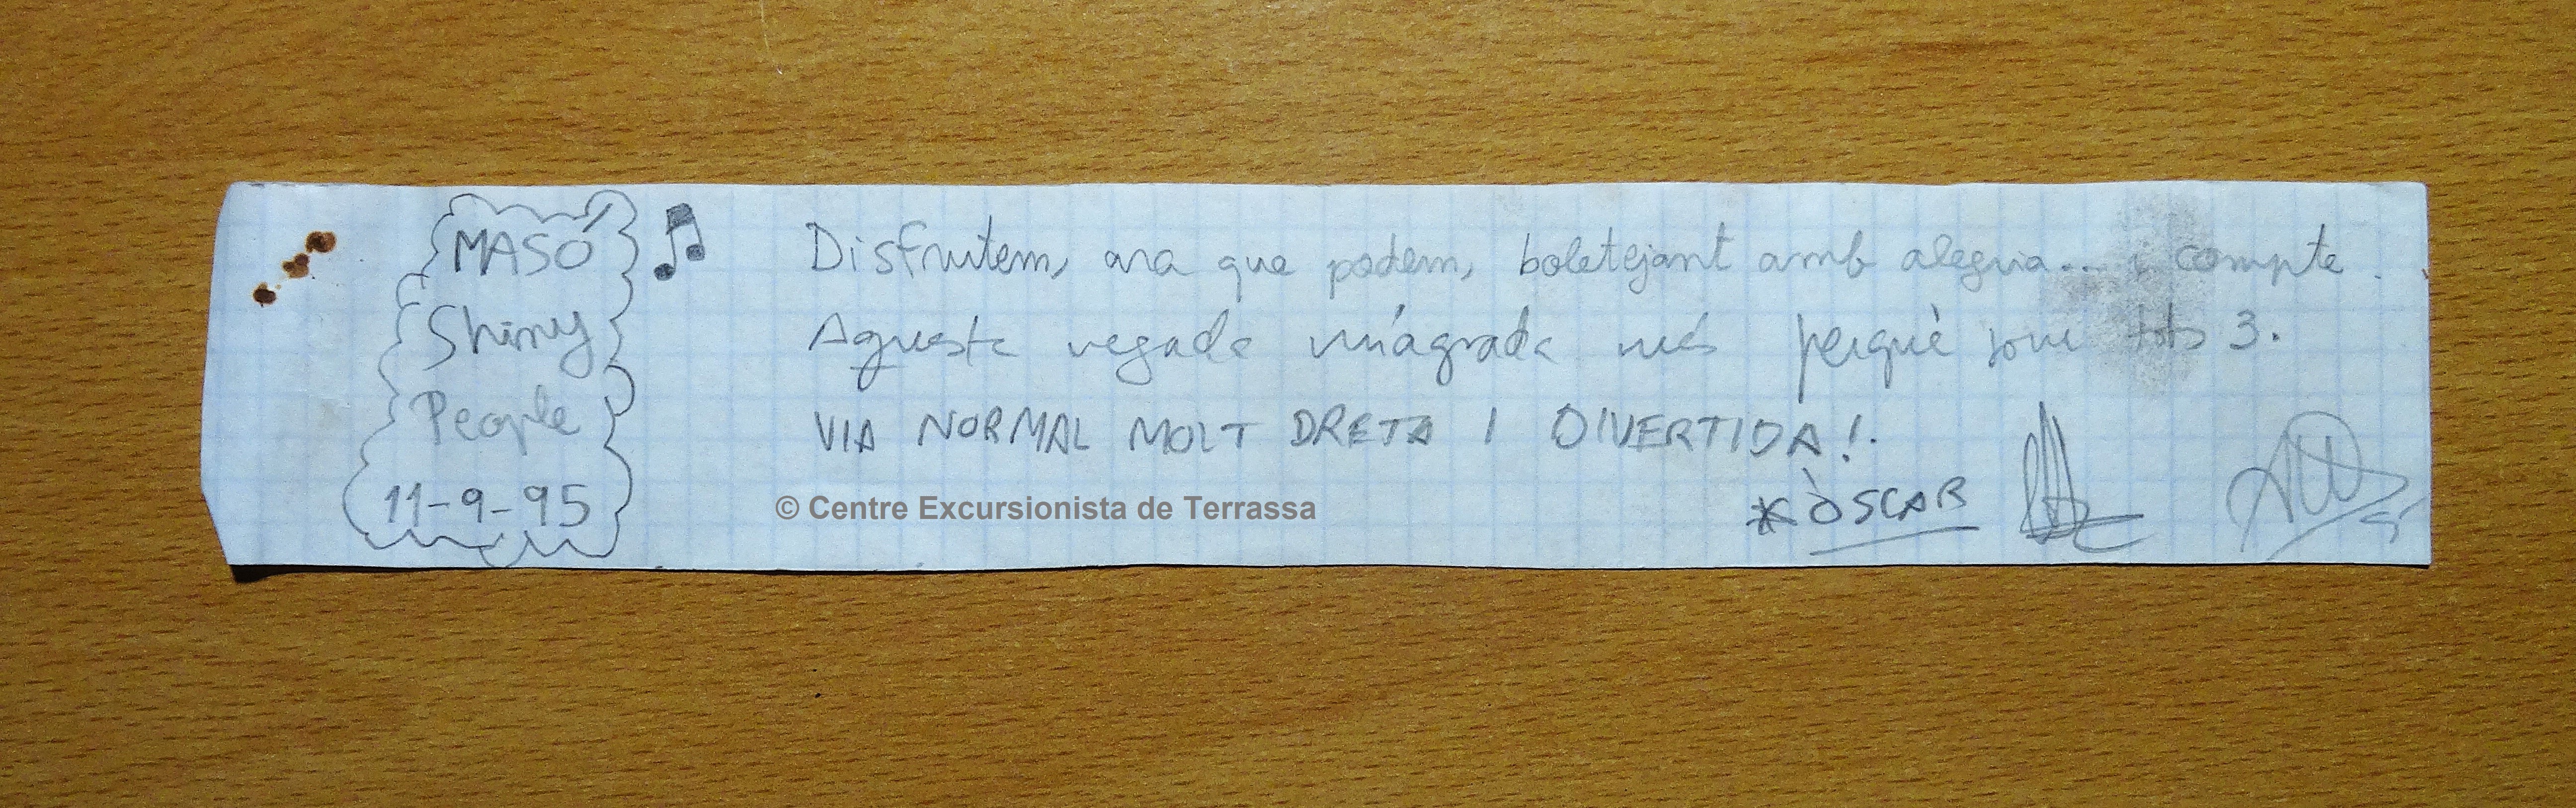 MASÓ
Shiny
People
11-9-95
Disfrutem, ara que podem, boletejant amb alegria... i compte.
Aquesta vegada m'agrada més perquè som tots 3.
VIA NORMAL MOLT DRETA I DIVERTIDA!.
* ÒSCAR
© Centre Excursionista de Terrassa